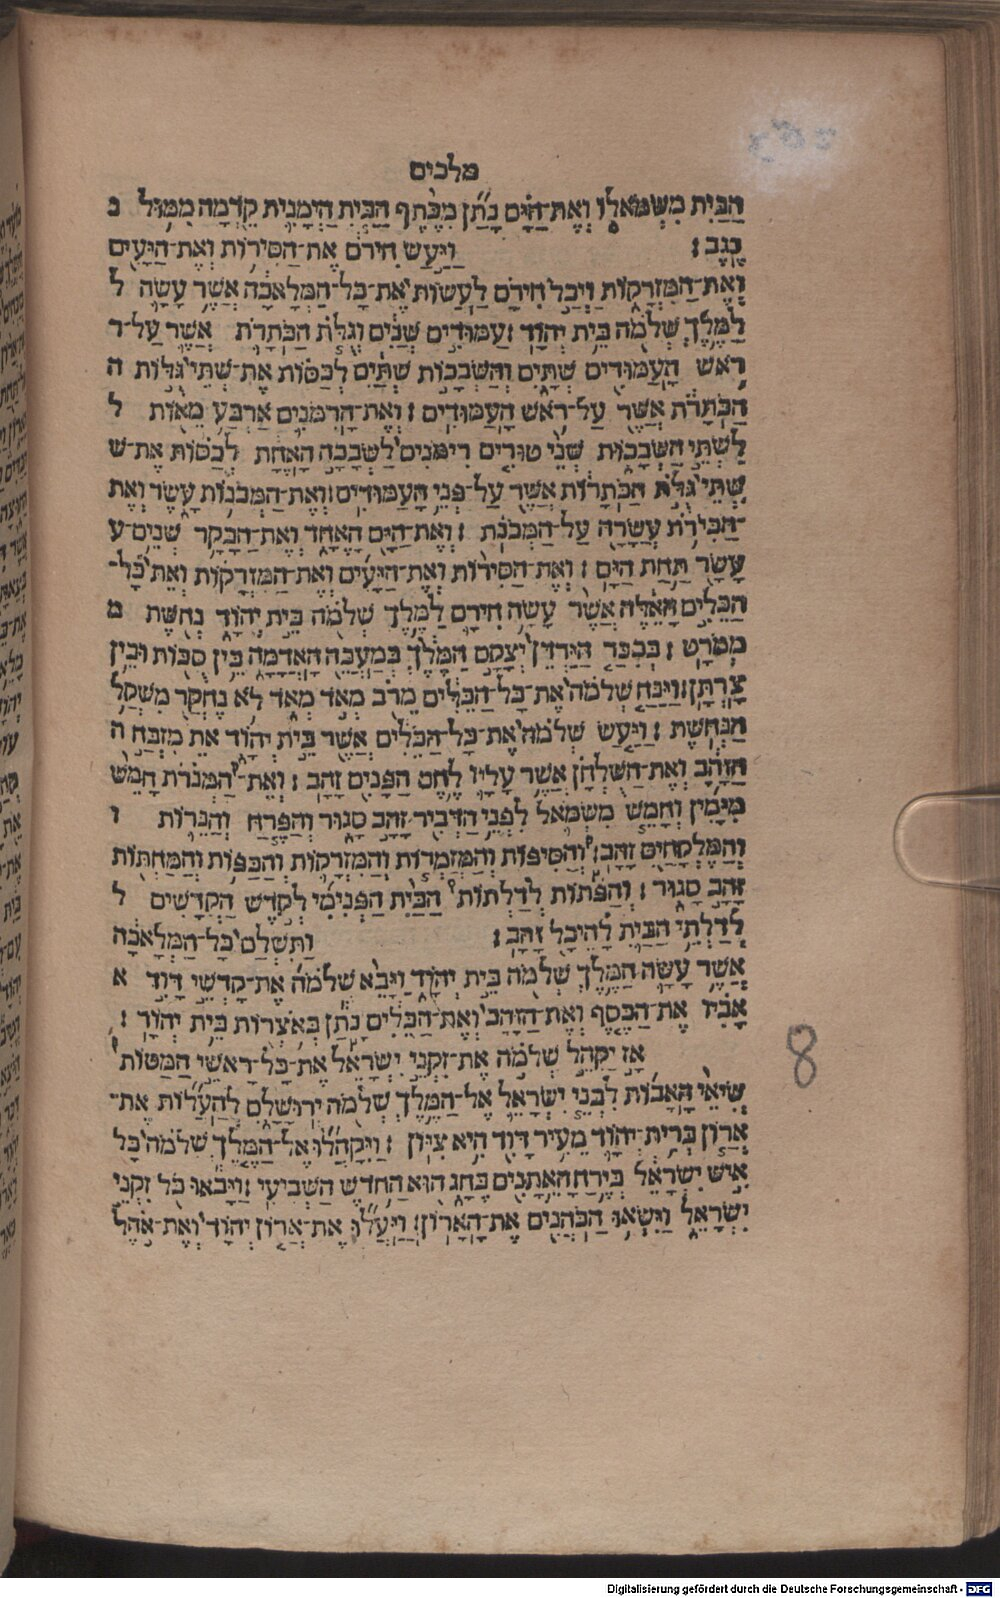 מלכים
הַבַּיִת מִשְּׂמֹאלוֹ וְאֶת־הַיָּם נָתַן מִכֶּתֶף הַבַּיִת הַיְמָנִית קֵדְמָה מִמּוּל נ
נֶגֶב׃ וַיַּעַשׂ חִירֹם אֶת־הַסִּירוֹת וְאֶת־הַיָּעִים
וְאֶת־הַמִּזְרָקוֹת וַיְכַל חִירָם לַעֲשׂוֹת אֶת־כָּל־הַמְּלָאכָה אֲשֶׁר עָשָׂה ל
לַמֶּלֶךְ שְׁלֹמֹה בֵּית יְהוָֹד׃ עַמּוּדִים שְׁנַיִם וְגֻלֹּת הַכֹּתָרֹת אֲשֶׁר עַל־ר
רֹאשׁ הָעַמּוּדִים שְׁתָּיִם וְהַשְּׂבָכוֹת שְׁתַּיִם לְכַסּוֹת אֶת־שְׁתֵּי גֻּלּוֹת ה
הַכֹּתָרֹת אֲשֶׁר עַל־רֹאשׁ הָעַמּוּדִים׃ וְאֶת־הָרִמֹּנִים אַרְבַּע מֵאוֹת ל
לִשְׁתֵּי הַשְּׂבָכוֹת שְׁנֵי טוּרִים רִימֹּנִים לַשְּׂבָכָה הָאֶחָת לְכַסּוֹת אֶת־ש
שְׁתֵּי גֻּלֹּת הַכֹּתָרוֹת אֲשֶׁר עַל־פְּנֵי הָעַמּוּדִים׃ וְאֶת־הַמְּכֹנוֹת עָשֶׂר וְאֶת
־הַכִּירֹת עֲשָׂרָה עַל־הַמְּכֹנֹת׃ וְאֶת־הַיָּם הָאֶחָד וְאֶת־הַבָּקָר שְׁנֵים־ע
עָשָׂר תַּחַת הַיָּם׃ וְאֶת־הַסִּירוֹת וְאֶת־הַיָּעִים וְאֶת־הַמִּזְרָקוֹת וְאֵת כָּל־
הַכֵּלִים הָאֵלֶּה אֲשֶׁר עָשָׂה חִירָם לַמֶּלֶךְ שְׁלֹמֹה בֵּית יְהוָֹד נְחֹשֶׁת מ
מְמֹרָט׃ בְּכִכַּר הַיַּרְדֵּן יְצָקָם הַמֶּלֶךְ בְּמַעֲבֵה הָאֲדָמָה בֵּין סֻכּוֹת וּבֵין
צָרְתָן׃ וַיַּנַּח שְׁלֹמֹה אֶת־כָּל־הַכֵּלִים מֵרֹב מְאֹד מְאֹד לֹא נֶחְקַר מִשְׁקַל
הַנְּחֹשֶׁת׃ וַיַּעַשׂ שְׁלֹמֹה אֶת־כָּל־הַכֵּלִים אֲשֶׁר בֵּית יְהוָֹד אֵת מִזְבַּח ה
הַזָּהָב וְאֶת־הַשֻּׁלְחָן אֲשֶׁר עָלָיו לֶחֶם הַפָּנִים זָהָב׃ וְאֶת־הַמְּנֹרֹת חָמֵשׁ
מִיָּמִין וְחָמֵשׁ מִשְּׂמֹאל לִפְנֵי הַדְּבִיר זָהָב סָגוּר וְהַפֶּרַח וְהַנֵּרוֹת ו
וְהַמֶּלְקַחַיִם זָהָב׃ וְהַסִּיפּוֹת וְהַמְזַמְּרוֹת וְהַמִּזְרָקוֹת וְהַכַּפּוֹת וְהַמַּחְתּוֹת
זָהָב סָגוּר׃ וְהַפֹּתוֹת לְדַלְתוֹת הַבַּיִת הַפְּנִימִי לְקֹדֶשׁ הַקֳּדָשִׁים ל
לְדַלְתֵי הַבַּיִת לַהֵיכָל זָהָב׃ וַתִּשְׁלַם כָּל־הַמְּלָאכָה
אֲשֶׁר עָשָׂה הַמֶּלֶךְ שְׁלֹמֹה בֵּית יְהוָֹד וַיָּבֵא שְׁלֹמֹה אֶת־קָדְשֵׁי דָּוִד א
אָבִיו אֶת־הַכֶּסֶף וְאֶת־הַזָּהָב וְאֶת־הַכֵּלִים נָתַן בְּאֹצְרוֹת בֵּית יְהוָֹד׃
אָז יַקְהֵל שְׁלֹמֹה אֶת־זִקְנֵי יִשְׂרָאֵל אֶת־כָּל־רָאשֵׁי הַמַּטּוֹת
שִׂיאֵי הָאָבוֹת לִבְנֵי יִשְׂרָאֵל אֶל־הַמֶּלֶךְ שְׁלֹמֹה יְרוּשָׁלִָם לְהַעֲלוֹת אֶת־
אֲרוֹן בְּרִית־יְהוָֹד מֵעִיר דָּוִד הִיא צִיּוֹן׃ וַיִּקָּהֲלוּ אֶל־הַמֶּלֶךְ שְׁלֹמֹה כָּל
אִישׁ יִשְׂרָאֵל בְּיֶרַח הָאֵתָנִים בֶּחָג הוּא הַחֹדֶשׁ הַשְּׁבִיעִי׃ וַיָּבֹאוּ כֹּל זִקְנֵי
יִשְׂרָאֵל וַיִּשְׂאוּ הַכֹּהֲנִים אֶת־הָאָרוֹן׃ וַיַּעֲלוּ אֶת־אֲרוֹן יְהוָֹד וְאֶת־אֹהֶל
8
Digitalisierung gefördert durch die Deutsche Forschungsgemeinschaft - DFG